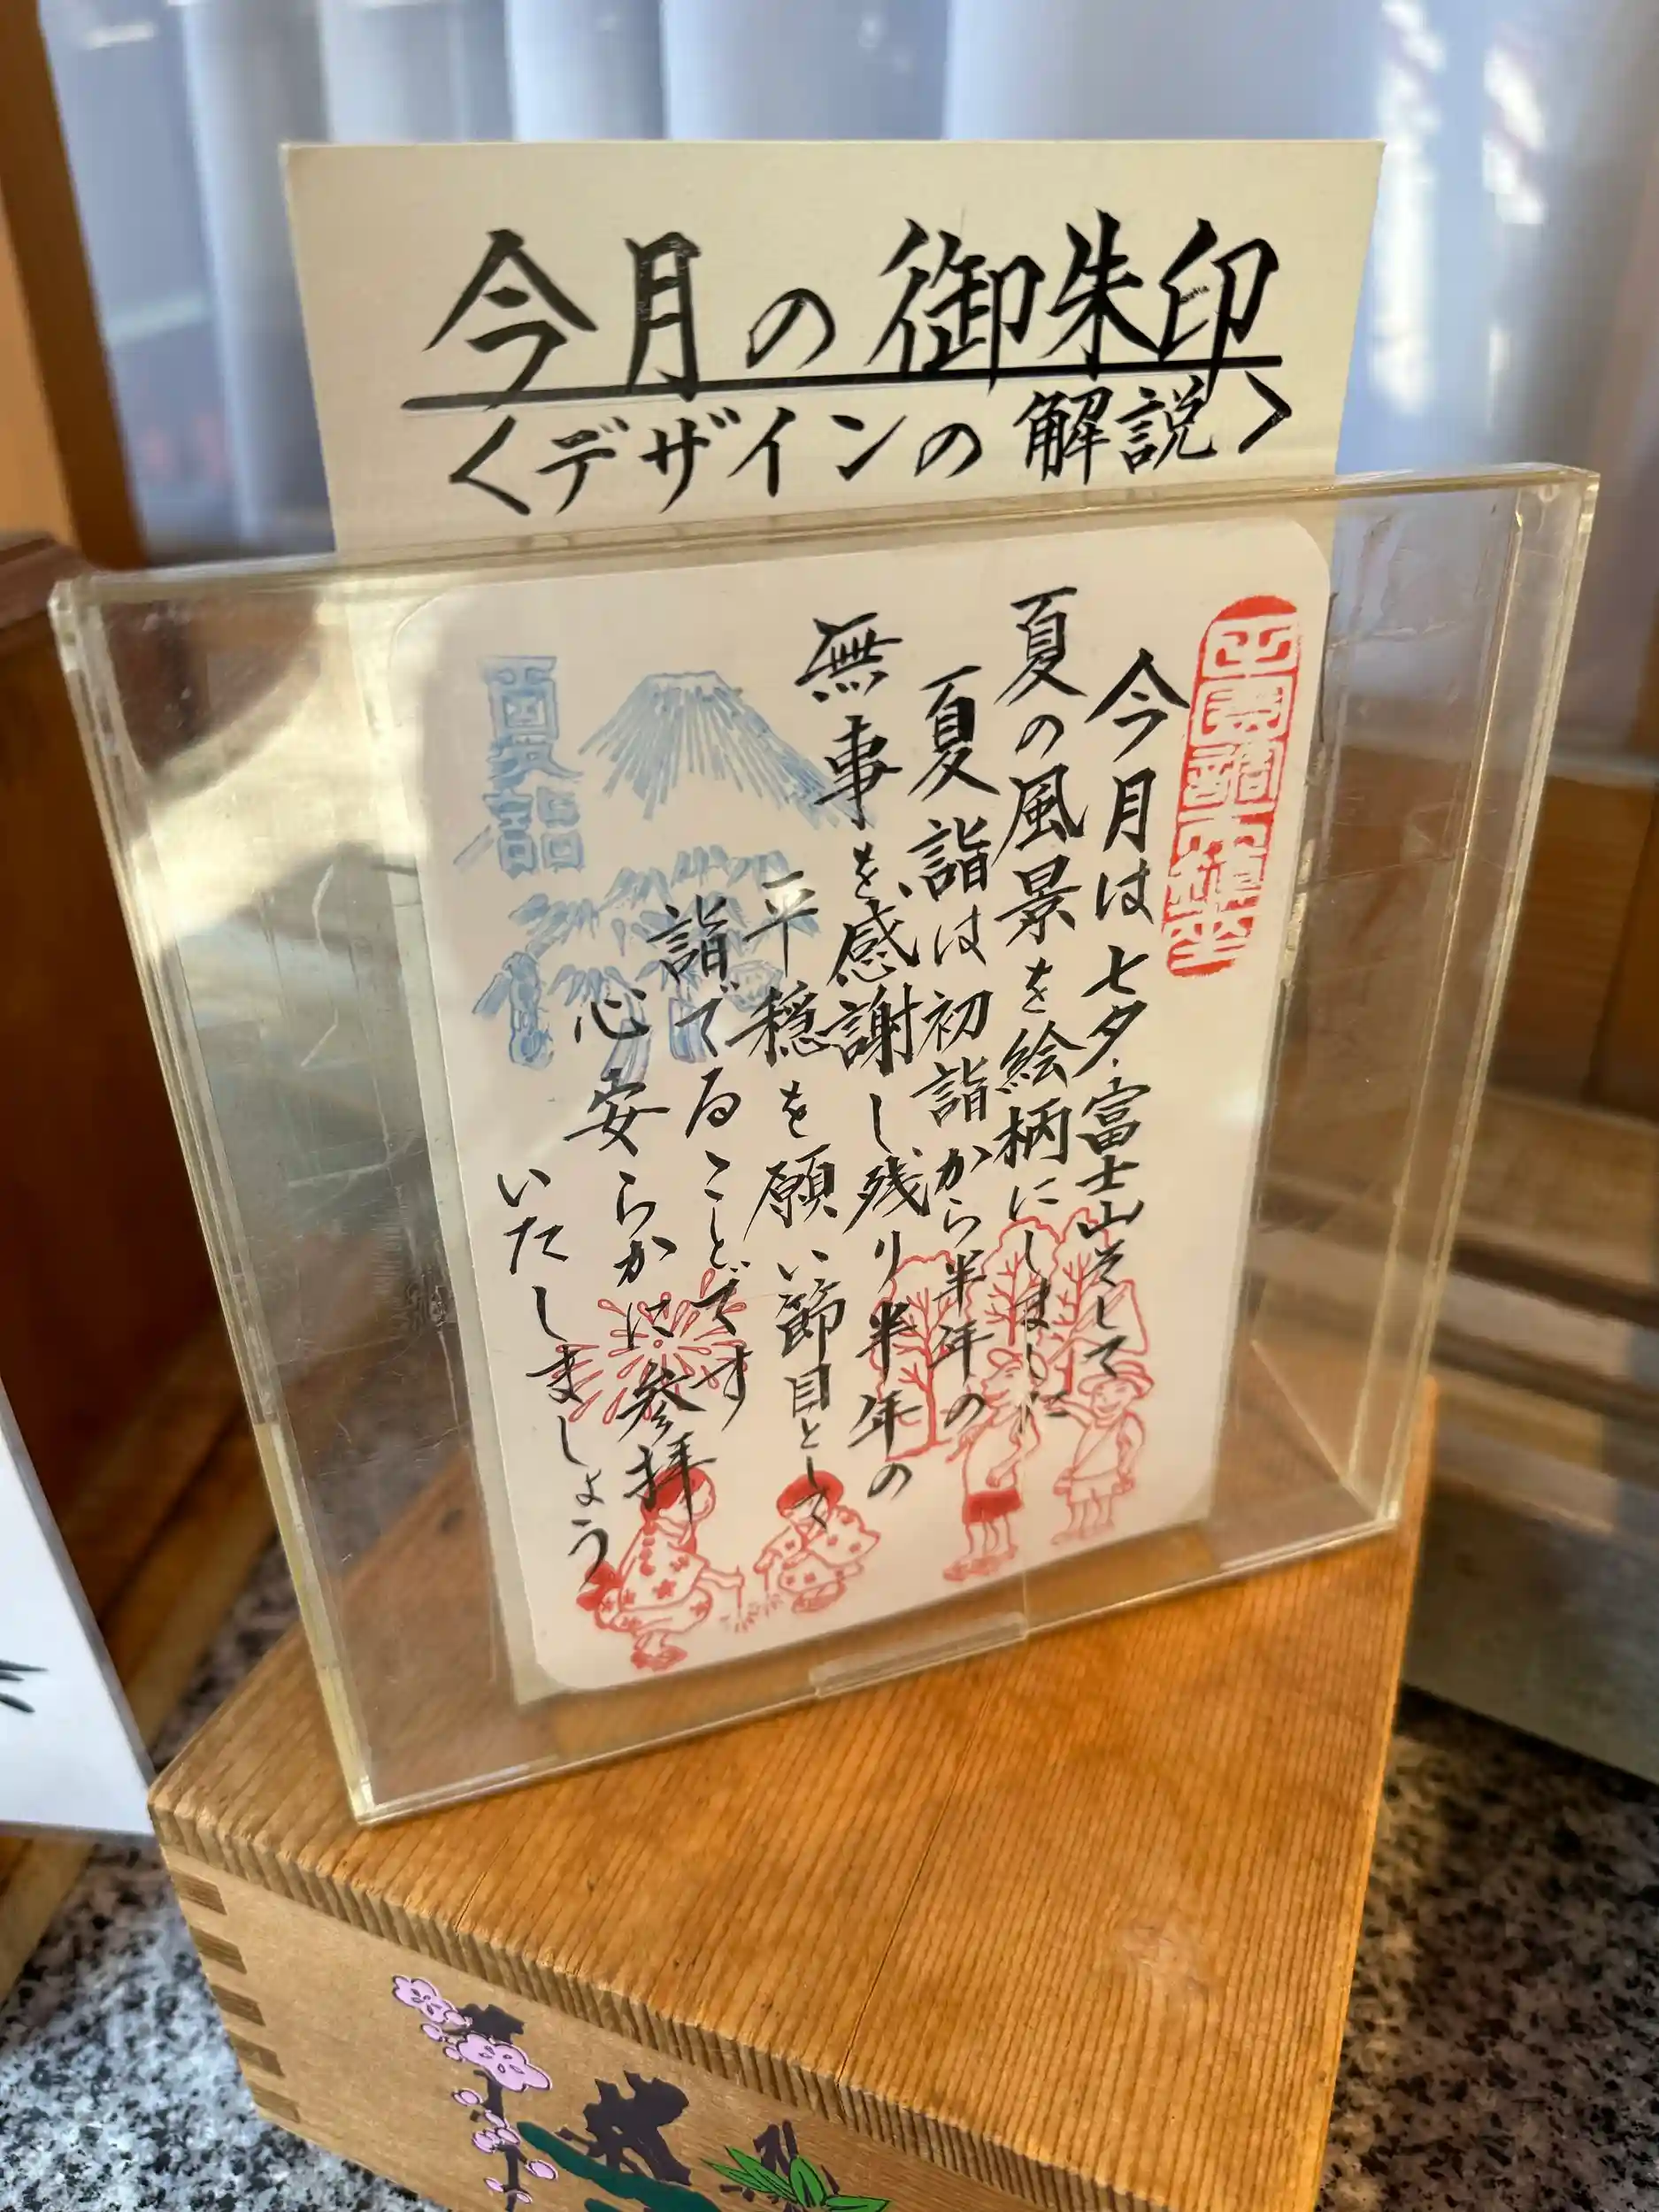 今月の御朱印
<デザインの解説>
今月は七夕・富士山そして
夏の風景を絵柄にしました
夏詣は初詣から半年の
無事を感謝し残り半年の
平穏を願い節目として
詣でることです
心安らかに参拝
いたしましょう
夏詣